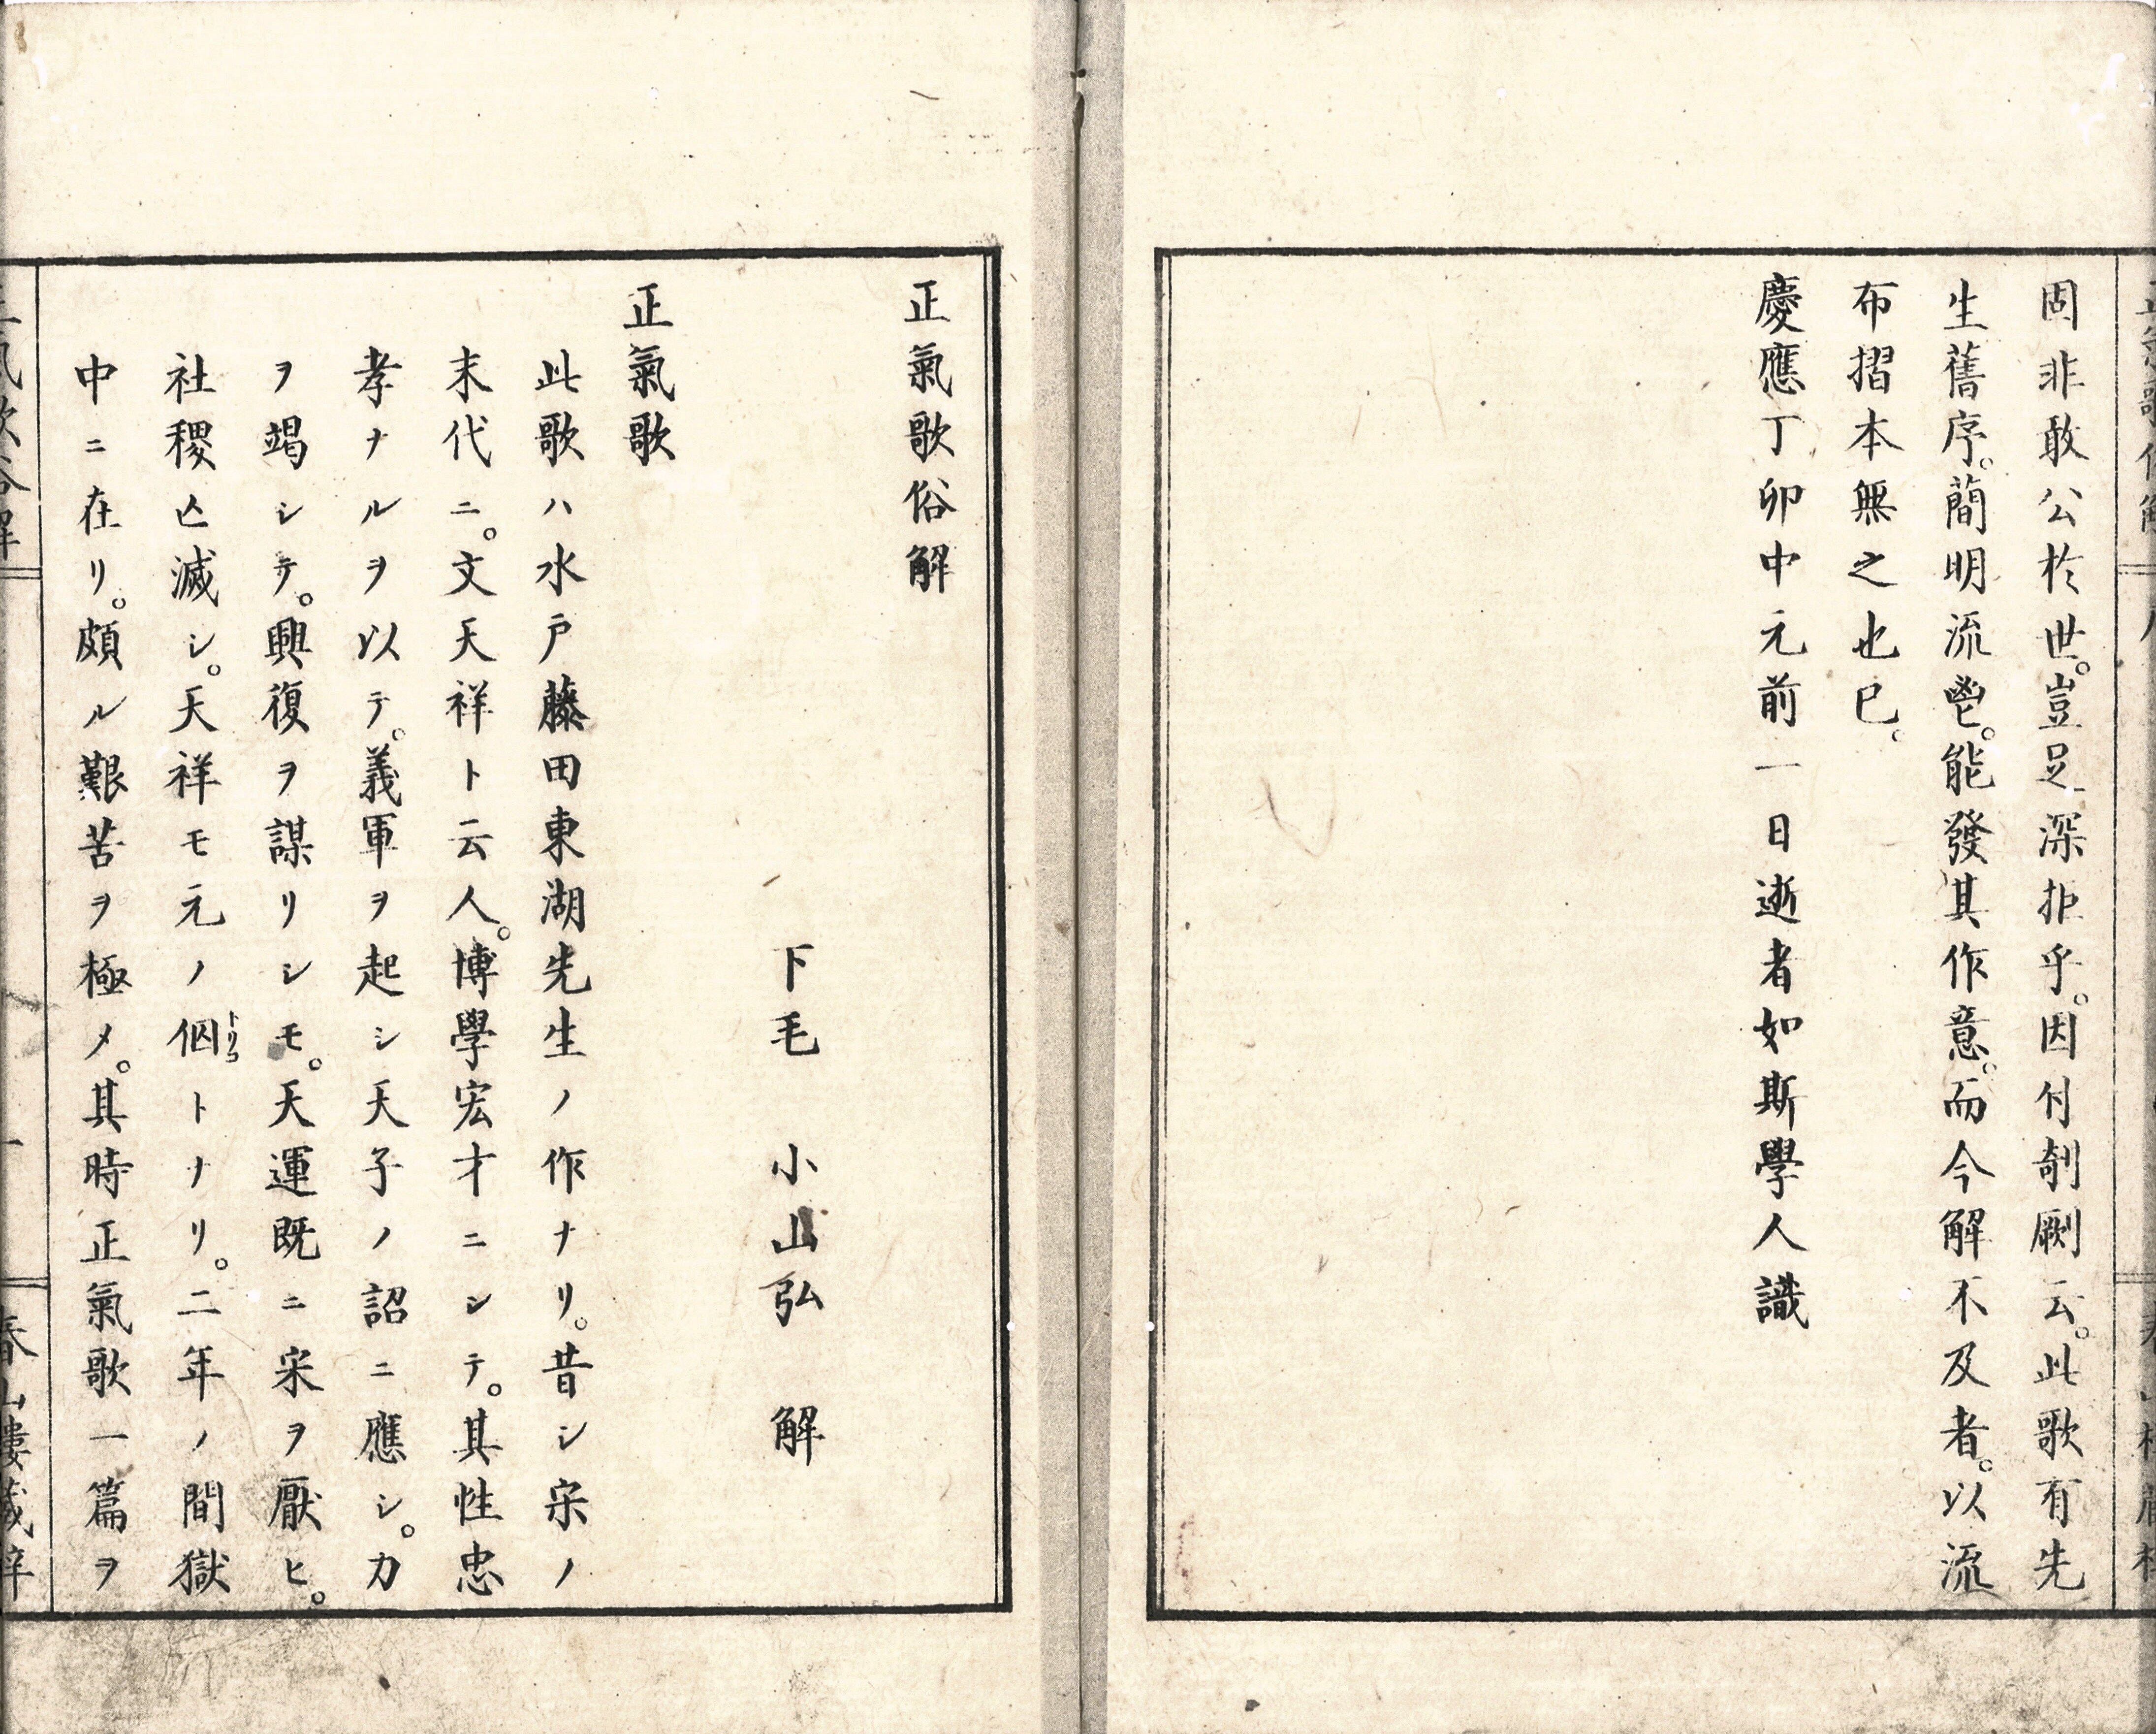 固非敢公於世。豈足深拒乎。因付剞劂云。此歌有先
生舊序。簡明流鬯。能發其作意。而今解不及者。以流
布摺本無之也已。
慶應丁卯中元前一日逝者如斯學人識
正氣歌俗解
下毛 小山弘 解
正氣歌
此歌ハ水戸藤田東湖先生ノ作ナリ。昔シ宋ノ
末代ニ。文天祥ト云人。博學宏才ニシテ。其性忠
孝ナルヲ以テ。義軍ヲ起シ天子ノ詔ニ應シ。力
ヲ竭シテ。興復ヲ謀リシモ。天運既ニ宋ヲ厭ヒ。
社稷亡滅シ。天祥モ元ノ㑌トナリ。二年ノ間獄
トリコ
中ニ在リ。頗ル艱苦ヲ極メ。其時正氣歌一篇ヲ